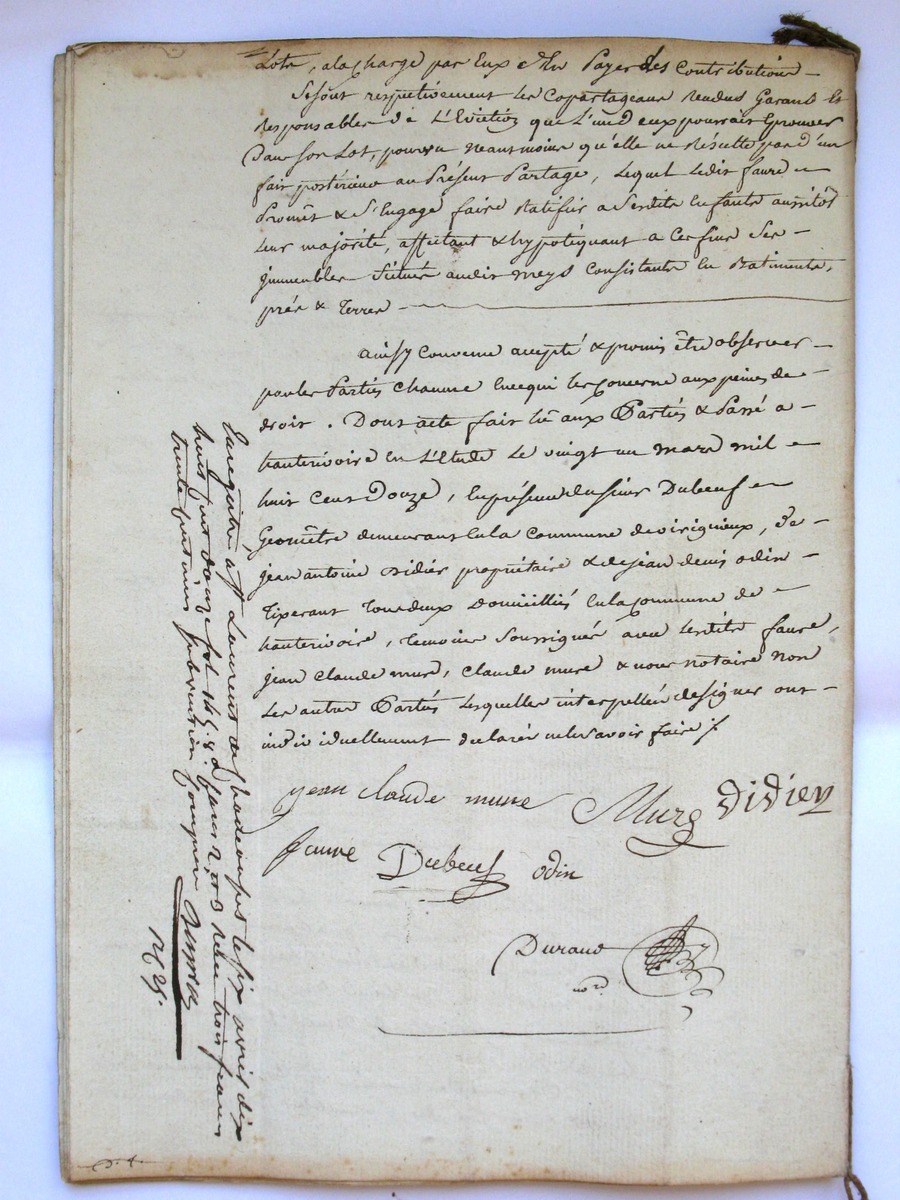 Lots, a la charge par Eux d'En Payer des Contributions –
Se sont respectivement les Copartageans Rendus Garans Et
Responsables de L'Eviction que L'un d'eux pourrait Eprouver
Dans Son Lot, pourvu neantmoins qu'elle ne Résulte pas D'un
fait postérieur au Présent Partage, Lequel Ledit faure –
Promet & S'Engage faire Ratifier a Sesdits Enfants aussitôt
Leur majorité, affectant & hypotéquant a Ces fins Ses –
jmmeubles Situés audit meys Consistants En Batiments,
prés & Terres –
ainsy Convenu accepté & promis être observer –
par les Parties Chacune En ce qui les Concerne aux peines de –
droit. Dont acte fait lu aux Parties & Passé a –
hauterivoire En L'Etude Le vingt un mars mil –
huit Cent Douze, En présence du sieur Dubeuf –
Geomêtre demeurant En la Commune de virignieux, De –
jean antoine Didier propriétaire & de jean denis odin –
Tixerant Tous deux Domiciliés En la Commune de –
hauterivoire, Temoins Soussignés avec Lesdits faure,
jean Claude mure, Claude mure & nous notaire Non
Les autres Parties Lesquelles interpellées de signer ont –
individuellement déclaré ne le savoir faire ./.
jean claude mure Mure Didier
faure Dubeuf odin
Durand
no.re
Enregistré a St Laurent de Chadousset le six avril dix
huit cent douze fol. 145 Reçu trois francs
trente centimes subvention comprise